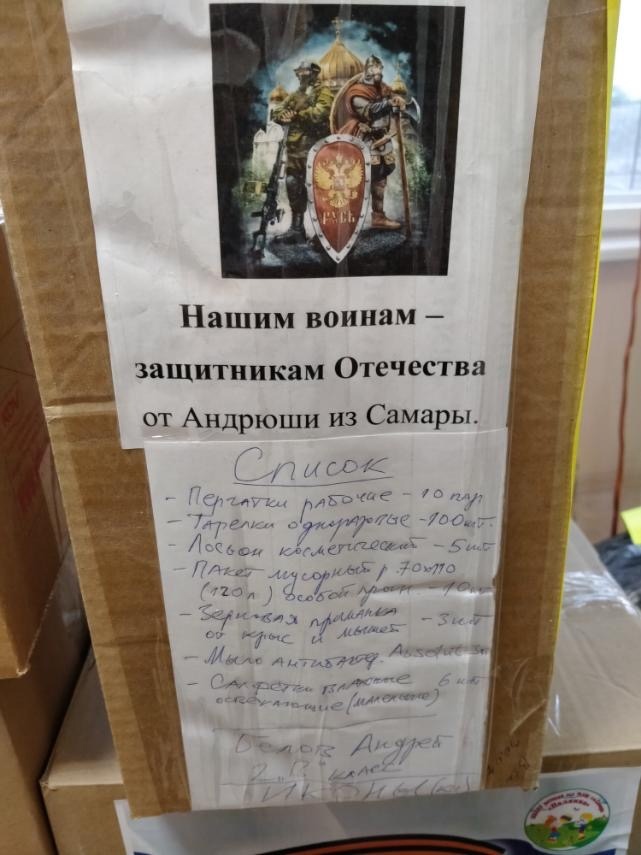 РУСЬ
Нашим воинам –
защитникам Отечества
от Андрюши из Самары.
Список
- Перчатки рабочие - 10 пар
- Тарелки одноразовые - 100 шт.
- Лосьон косметический - 5 шт
- Пакет мусорный р. 70х110
(120л) особой проч.
- Зерновая приманка - 3 шт
от крыс и мышей
- Мыло антибакт. Absolut
- Салфетки влажные 6 шт
освежающие (маленькие)
Белов Андрей
2 „В" класс
Иконы
KDV